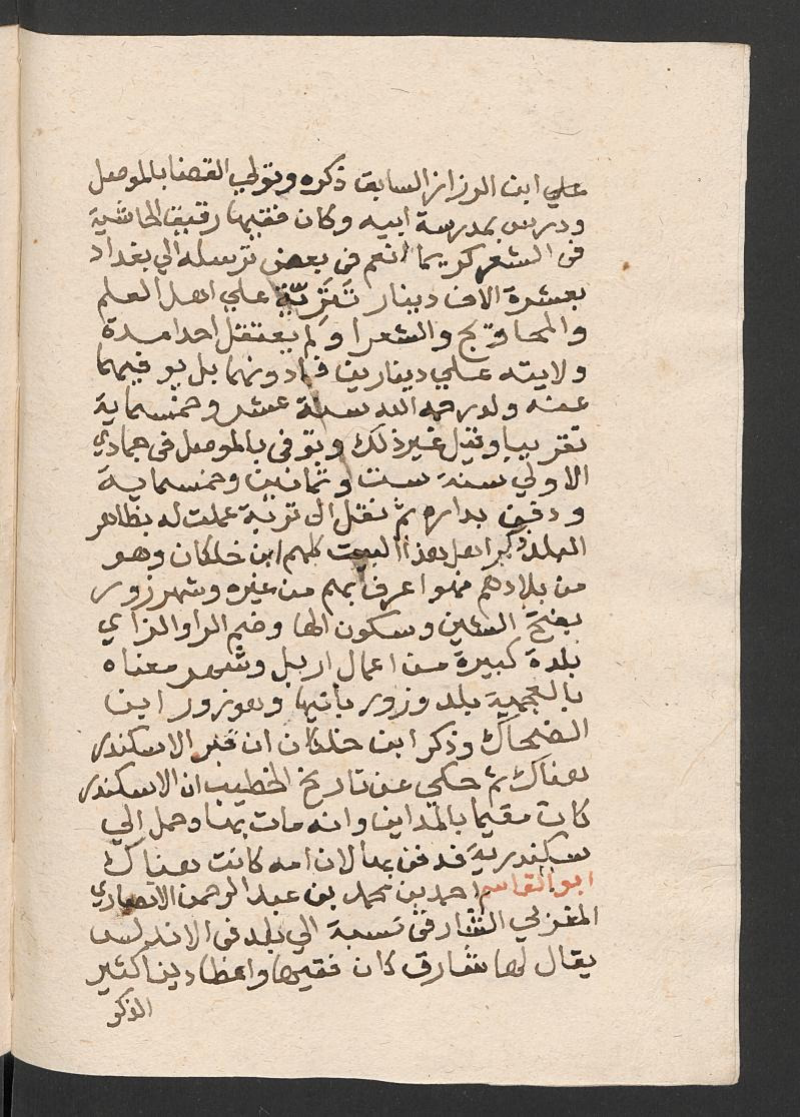 علي ابن الوزان السابق ذكره وتولي القضا بالموصل
ودرس بمدرسة ابيه وكان فقيها رقيق الحاشية
في الشعر كريما انعم في بعض ترسله الي بغداد
بعشرة الاف دينار علي اهل العلم
والمحاويج والشعرا ولم يعتقل احدا مدة
ولايته علي دينارين فما دونهما بل يوفيهما
عنه ولد رحمه الله سنة عشر وخمسماية
تقريبا وقيل غير ذلك وتوفي بالموصل في جمادي
الاولي سنة ست وثمانين وخمسماية
ودفن بداره ثم نقل الى تربة عملت له بظاهر
البلد ذكر اهل هذا البيت كلهم ابن خلكان وهو
من بلادهم فهو اعرف بهم من غيره وشهرزور
بفتح الشين وسكون الها وضم الرا والزاي
بلدة كبيرة من اعمال اربل وشهر معناه
بالعجمية بلد وزور بانيها وهو زور ابن
الضحاك وذكر ابن خلكان ان قبر الاسكندر
هناك ثم حكي عن تاريخ الخطيب ان الاسكندر
كان مقيما بالمداين وانه مات بها وحمل الي
سكندرية فدفن بها لان امه كانت هناك
ابو القاسم احمد بن محمد بن عبد الرحمن الانصاري
المغربي الشارقي نسبة الي بلد في الاندلس
يقال لها شارق كان فقيها واعظا دينا كثير
الذكر